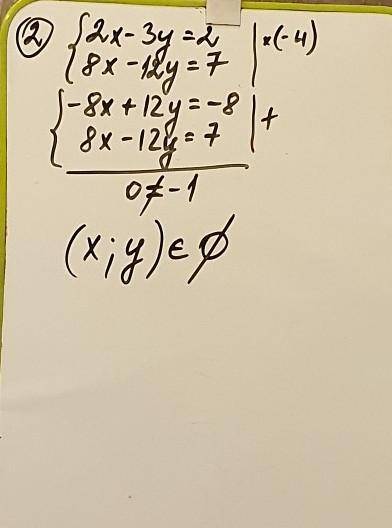 ② { 2x - 3y = 2 | ×(-4)
{ 8x - 12y = 7
{ -8x + 12y = -8 | +
{ 8x - 12y = 7
0 ≠ -1
(x; y) ∈ ∅